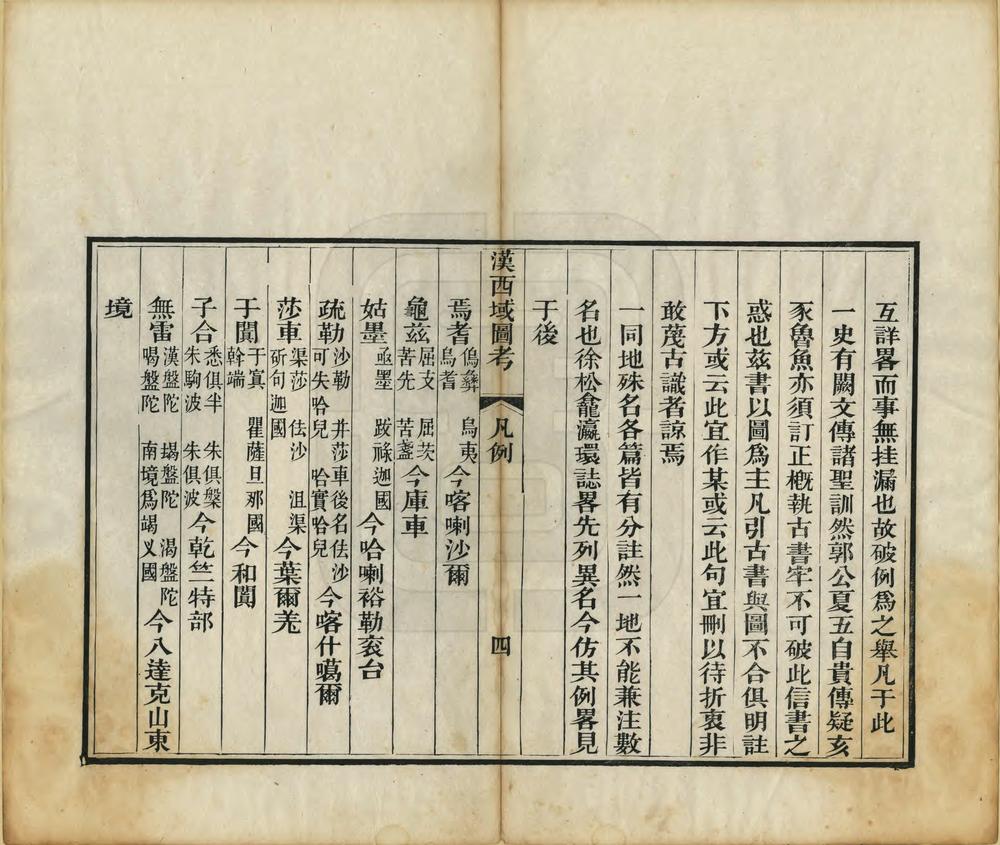 互詳畧而事無挂漏也故破例爲之舉凡于此
一史有闕文傳諸聖訓然郭公夏五自貴傳疑亥
豕魯魚亦須訂正槪執古書牢不可破此信書之
惑也茲書以圖爲主凡引古書與圖不合俱明註
下方或云此宜作某或云此句宜刪以待折衷非
敢蔑古識者諒焉
一同地殊名各篇皆有分註然一地不能兼注數
名也徐松龕瀛環誌畧先列異名今仿其例畧見
于後
漢西域圖考 凡例 四
焉耆 傿彝 烏夷 烏耆 今喀喇沙爾
龜茲 屈支 屈茨 苦先 苦盞 今庫車
姑墨 亟墨 跋祿迦國 今哈喇裕勒衮台
疏勒 沙勒 幷莎車後名佉沙 可失哈兒 哈實哈兒 今喀什噶爾
莎車 渠莎 佉沙 沮渠 硏句迦國 今葉爾羌
于闐 于寘 瞿薩旦那國 斡端 今和闐
子合 悉俱半 朱俱槃 朱駒波 朱俱波 今乾竺特部
無雷 漢盤陀 朅盤陀 渴盤陀 喝盤陀 南境爲竭叉國 今八達克山東
境